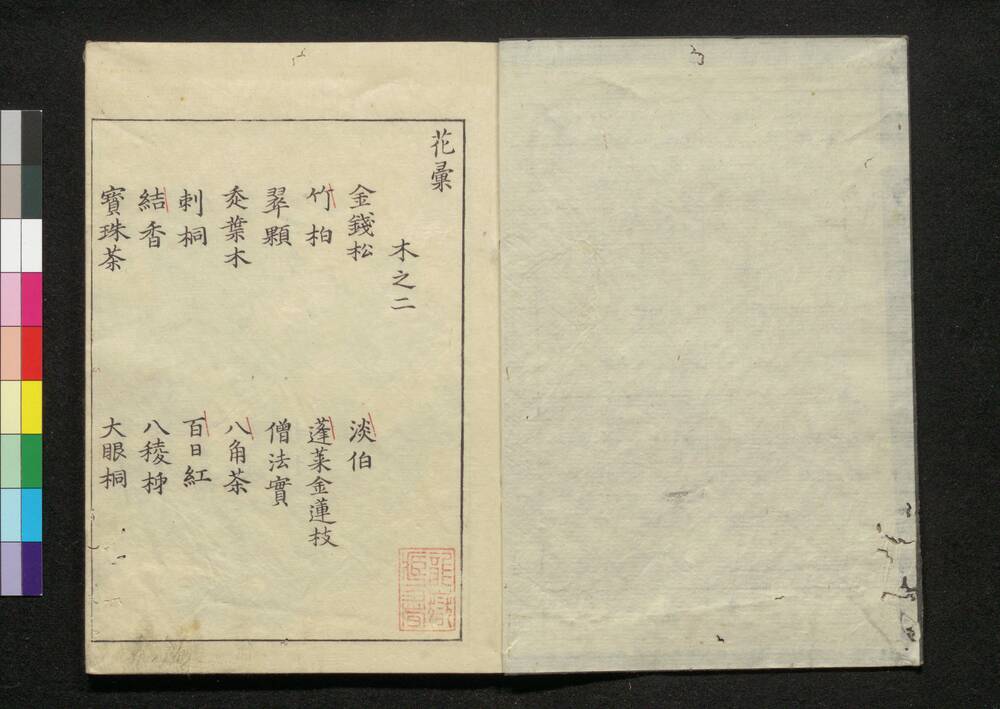 花彙
木之二
金錢松
淡伯
竹柏
蓬萊金蓮枝
翠顆
僧法實
忝葉木
八角茶
刺桐
百日紅
結香
八稜柹
寳珠茶
大眼桐